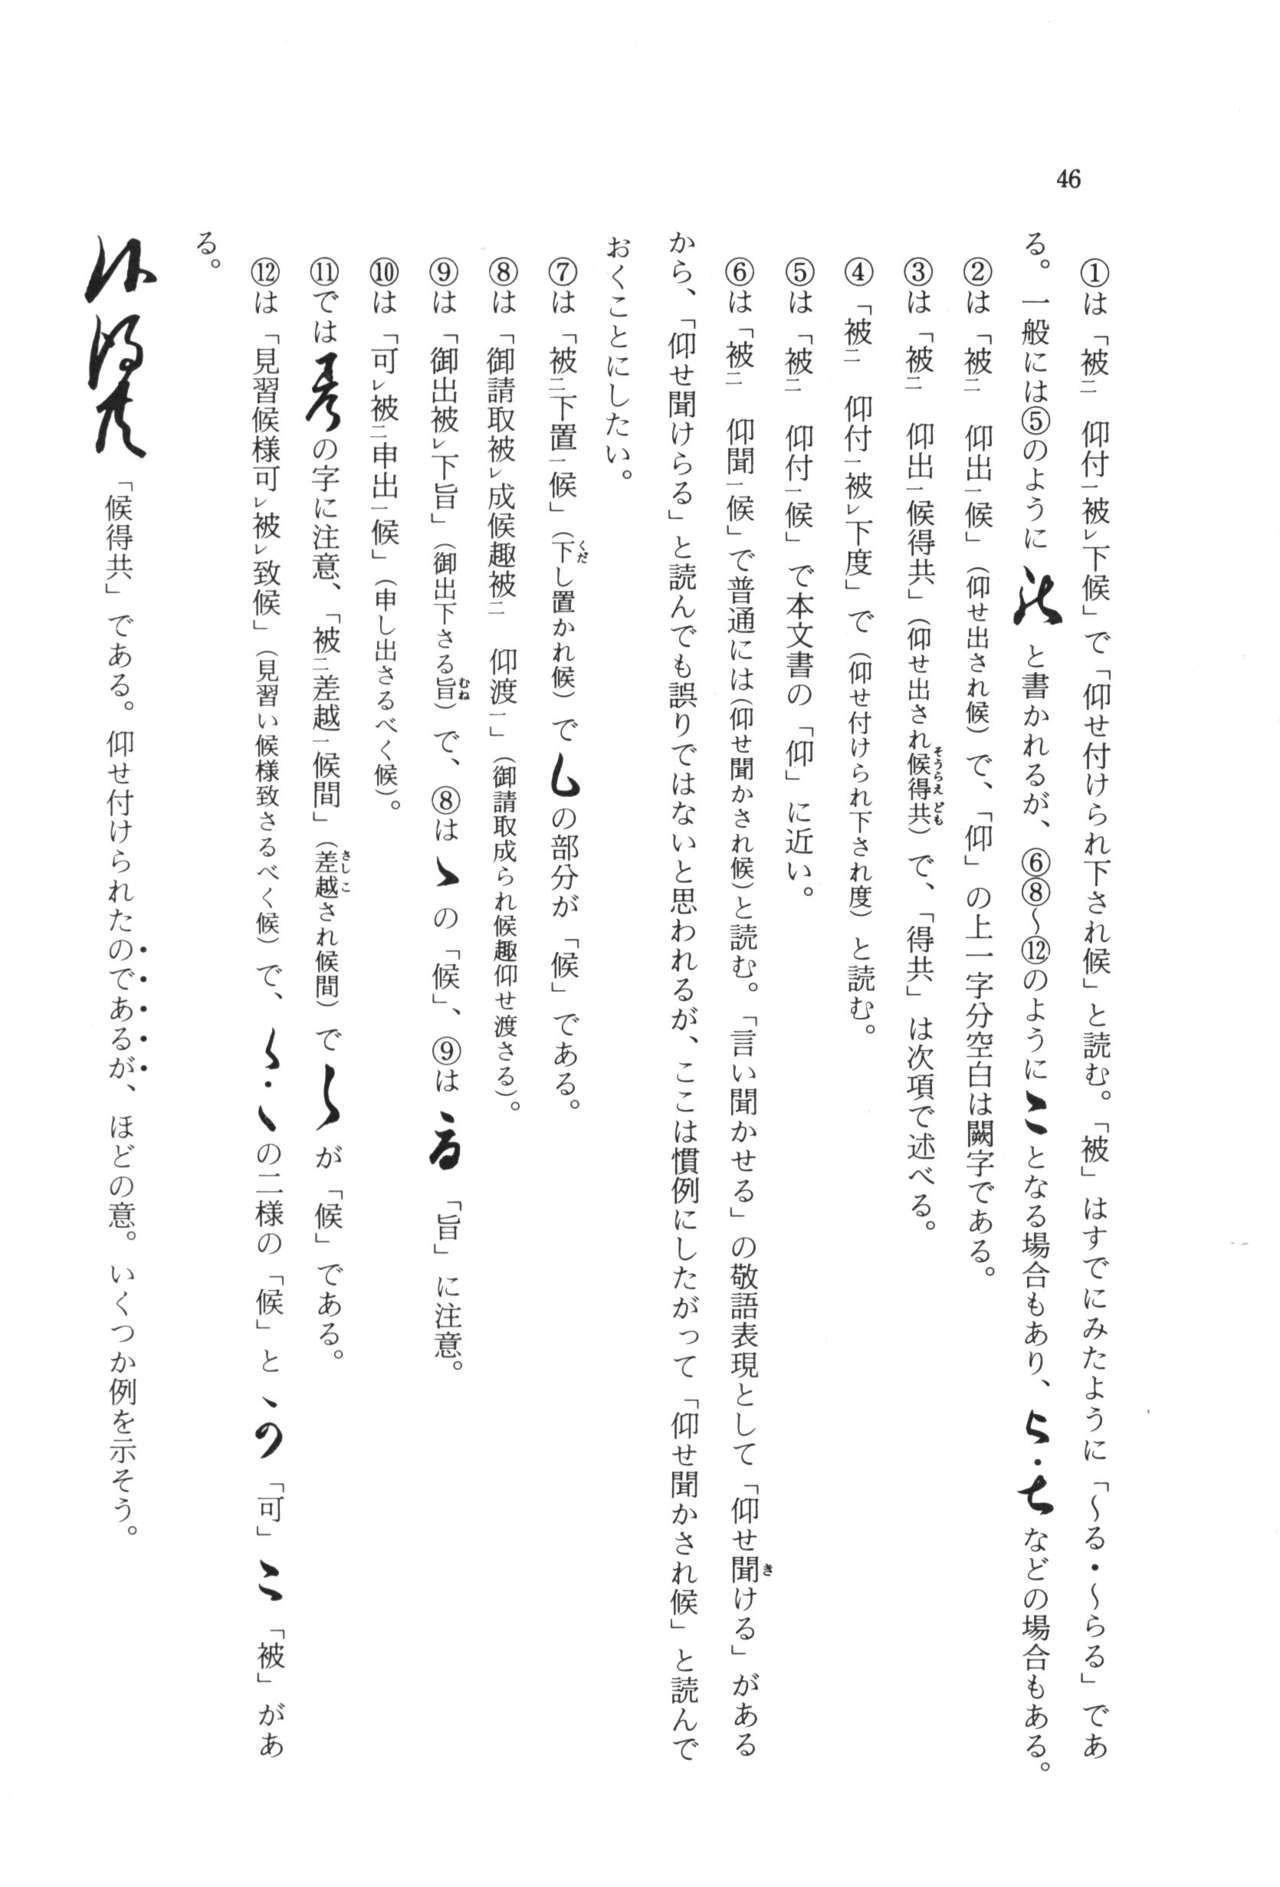 46
①は「被㆓ 仰付㆒被㆑下候」で「仰せ付けられ下され候」と読む。「被」はすでにみたように「〜る・〜らる」であ
る。一般には⑤のように と書かれるが、⑥⑧〜⑫のように となる場合もあり、 ・ などの場合もある。
②は「被㆓ 仰出㆒候」(仰せ出され候)で、「仰」の上一字分空白は闕字である。
③は「被㆓ 仰出㆒候得共」(仰せ出され候得共そうらえども)で、「得共」は次項で述べる。
④「被㆓ 仰付㆒被㆑下度」で(仰せ付けられ下され度)と読む。
⑤は「被㆓ 仰付㆒候」で本文書の「仰」に近い。
⑥は「被㆓ 仰聞㆒候」で普通には(仰せ聞かされ候)と読む。「言い聞かせる」の敬語表現として「仰せ聞きける」がある
から、「仰せ聞けらる」と読んでも誤りではないと思われるが、ここは慣例にしたがって「仰せ聞かされ候」と読んで
おくことにしたい。
⑦は「被㆓下置㆒候」(下くだし置かれ候)で の部分が「候」である。
⑧は「御請取被㆑成候趣被㆓ 仰渡㆒」(御請取成られ候趣仰せ渡さる)。
⑨は「御出被㆑下旨」(御出下さる旨むね)で、⑧は の「候」、⑨は 「旨」に注意。
⑩は「可㆑被㆓申出㆒候」(申し出さるべく候)。
⑪では の字に注意、「被㆓差越㆒候間」(差越さしこされ候間)で が「候」である。
⑫は「見習候様可㆑被㆑致候」(見習い候様致さるべく候)で、 ・ の二様の「候」と 「可」 「被」があ
る。
候得共 「候得共」である。仰せ付けられたのであるが、ほどの意。いくつか例を示そう。